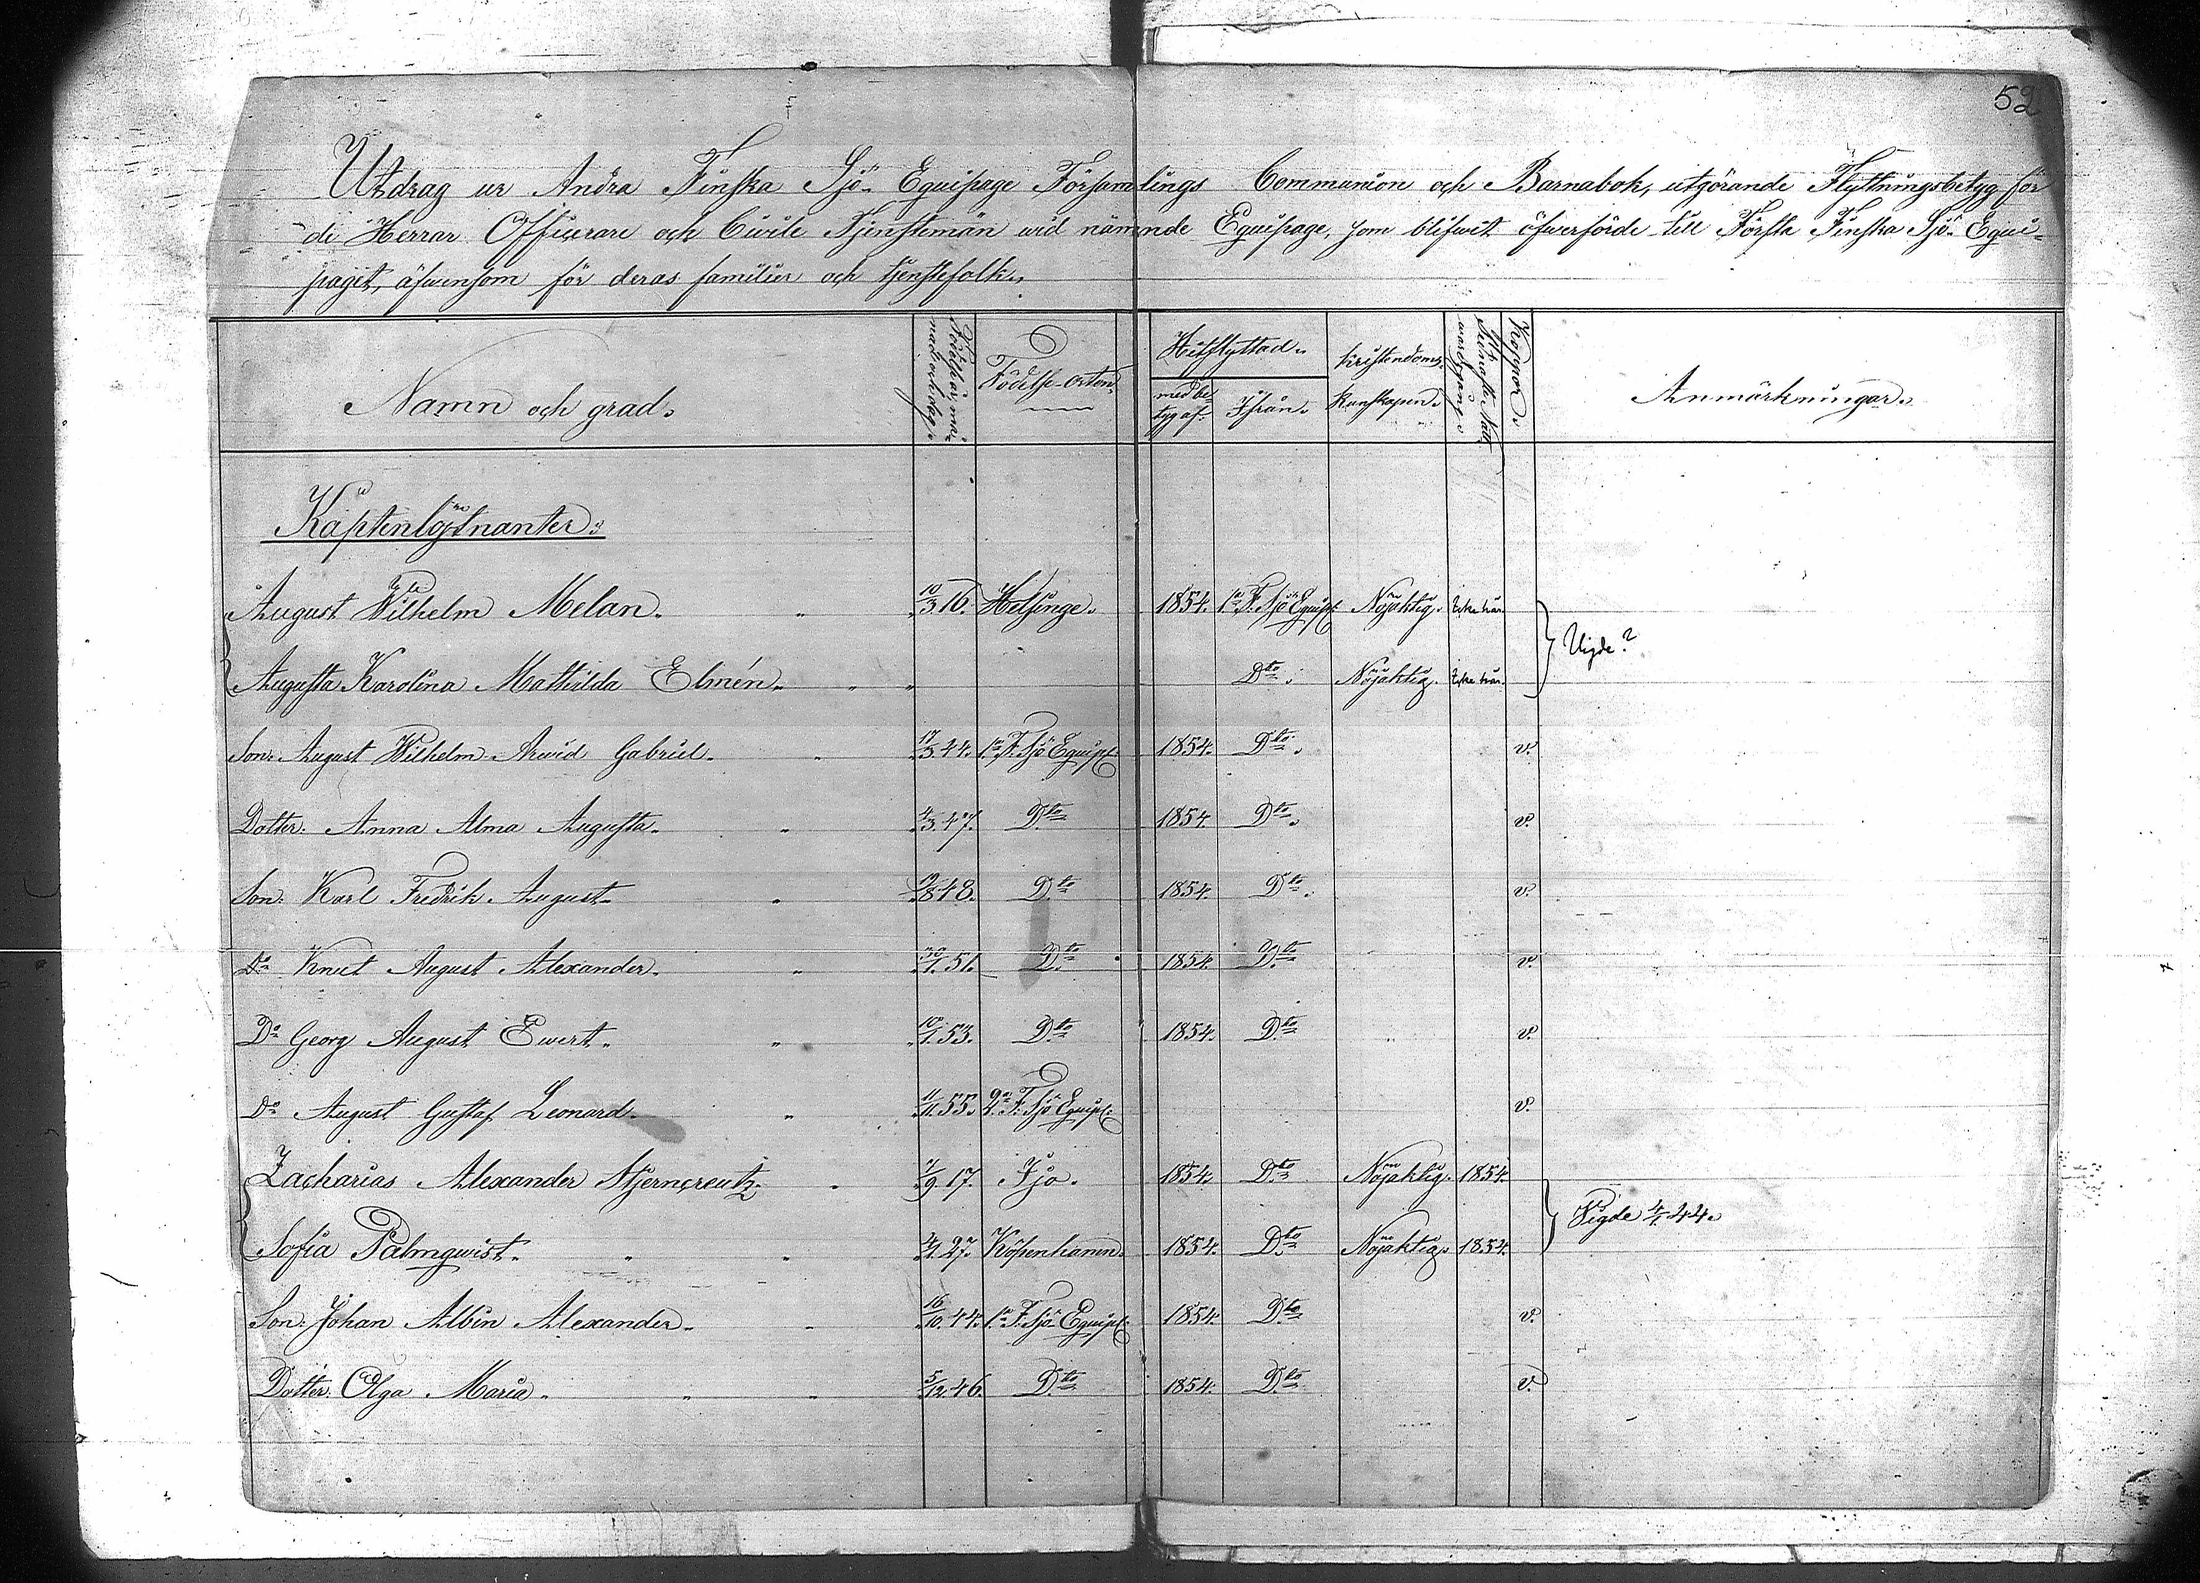 52
Utdrag ur Andra Finska Sjö-Equipage Församlings Communion och Barnabok, utgörande Flyttningsbetyg för
de Herrar Officerare och Civile Tjenstemän wid nämnde Equipage, som blifwit öfwerförde till Första Finska Sjö-Equi-
paget, äfwensom för deras familier och tjenstefolk.
Namn och grad. Födelse-orten. Hitflyttad. med be-tyg af. Ifrån. Kristendoms-kunskapen. Koppor. Anmärkningar.
Kaptenlöjtnanter:
August Wilhelm Melan. 10/3 16. Helsinge. 1854. 1a F. Sjö Equip. Nöjaktig.
Vigde?
Augusta Karolina Mathilda Elmén. Dto. Nöjaktig.
Son: August Wilhelm Arwid Gabriel. 17/3 44. 1a F. Sjö Equip. 1854. Dto. v.
Dotter: Anna Alma Augusta. 4/3 47. Dto 1854. Dto. v.
Son: Karl Fredrik August. 19/8 48. Dto 1854. Dto. v.
Do Knut August Alexander. 30/1 51. Dto 1854. Dto v.
Do Georg August Ewert. 10/1 53. Dto 1854. Dto v.
Do August Gustaf Leonard. 11/11 55. 2a F. Sjö Equip. v.
Zacharias Alexander Stjerncreutz. 7/9 17. Ijo. 1854. Dto Nöjaktig. 1854.
Vigde 4/1 44.
Sofia Palmqwist. 27. Köpenhamn. 1854. Dto Nöjaktig. 1854.
Son: Johan Albin Alexander. 16/10 44. 1a F. Sjö Equip. 1854. Dto v.
Dotter: Olga Maria. 5/12 46. Dto 1854. Dto v.